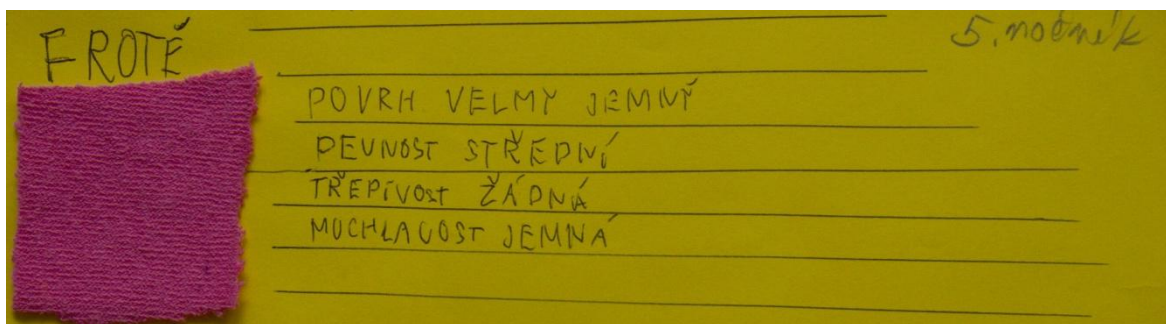 FROTÉ
5. ročník
POVRH VELMY JEMNÝ
PEVNOST STŘEDNÍ
TŘEPIVOST ŽÁDNÁ
MUCHLAVOST JEMNÁ